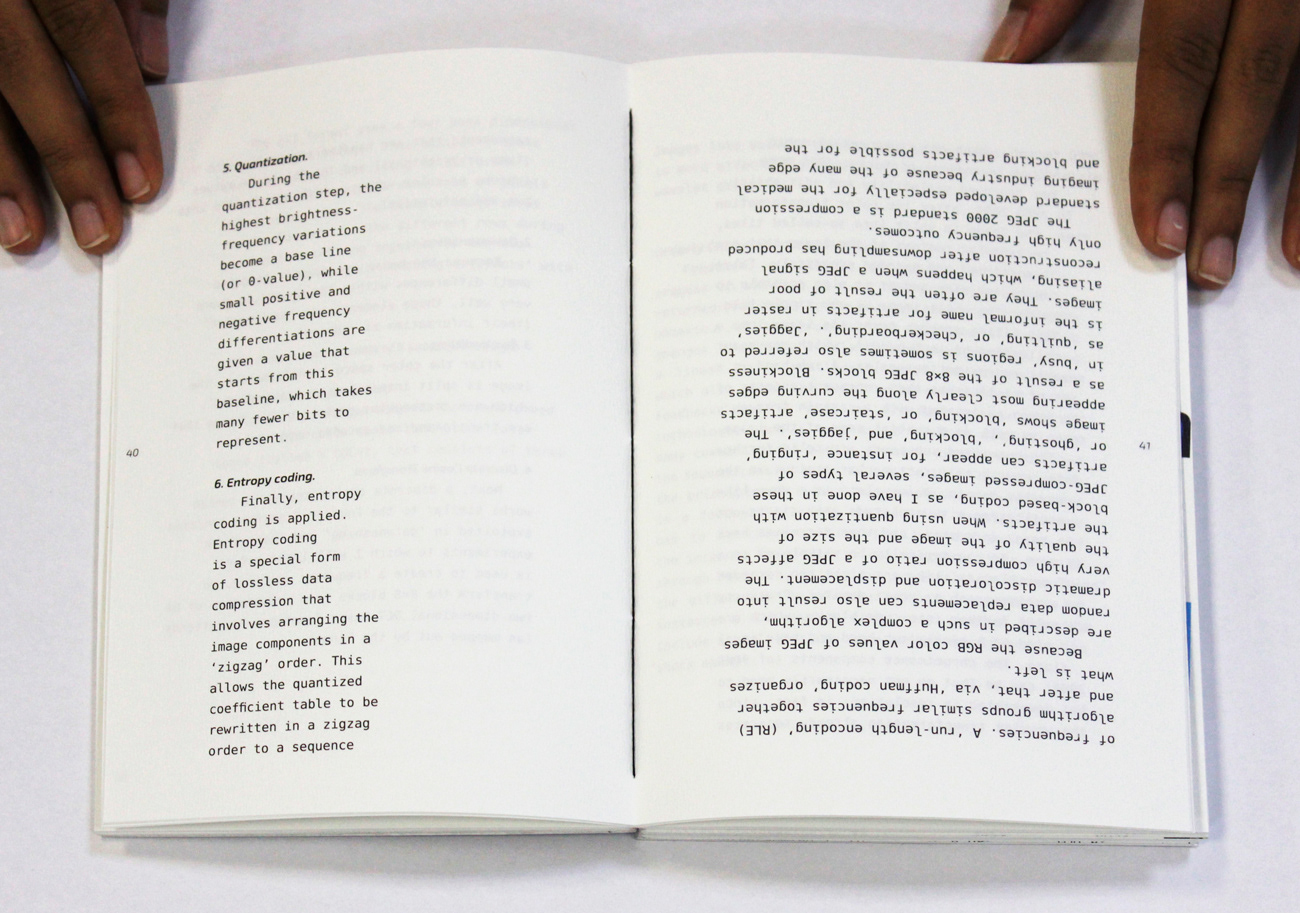 5. Quantization.
During the
quantization step, the
highest brightness-
frequency variations
become a base line
(or 0-value), while
small positive and
negative frequency
differentiations are
given a value that
starts from this
baseline, which takes
many fewer bits to
represent.
6. Entropy coding.
Finally, entropy
coding is applied.
Entropy coding
is a special form
of lossless data
compression that
involves arranging the
image components in a
‘zigzag’ order. This
allows the quantized
coefficient table to be
rewritten in a zigzag
order to a sequence
40
of frequencies. A ‘run-length encoding’ (RLE)
algorithm groups similar frequencies together
and after that, via ‘Huffman coding’ organizes
what is left.
Because the RGB color values of JPEG images
are described in such a complex algorithm,
random data replacements can also result into
dramatic discoloration and displacement. The
very high compression ratio of a JPEG affects
the quality of the image and the size of
the artifacts. When using quantization with
block-based coding, as I have done in these
JPEG-compressed images, several types of
artifacts can appear, for instance ‘ringing’
or ‘ghosting’, ‘blocking’ and ‘jaggies’. The
image shows ‘blocking’ or ‘staircase’ artifacts
appearing most clearly along the curving edges
as a result of the 8×8 JPEG blocks. Blockiness
in ‘busy’ regions is sometimes also referred to
as ‘quilting’ or ‘checkerboarding’. ‘Jaggies’
is the informal name for artifacts in raster
images. They are often the result of poor
aliasing, which happens when a JPEG signal
reconstruction after downsampling has produced
only high frequency outcomes.
The JPEG 2000 standard is a compression
standard developed especially for the medical
imaging industry because of the many edge
and blocking artifacts possible for the
41